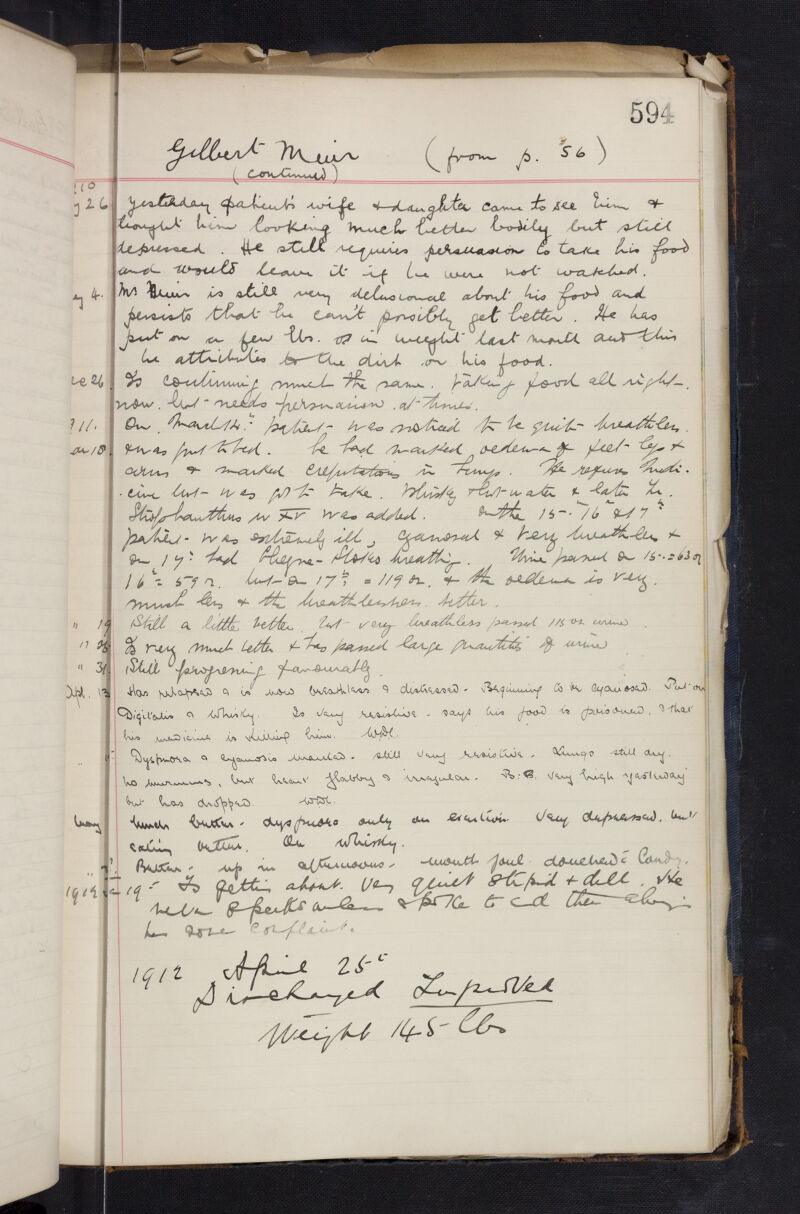 594
Gilbert Muir (from p. 56)
(continued)
10
26 Yesterday patient's wife & daughter came to see him &
thought him looking much better bodily but still
depressed. He still requires persuasion to take his food
and would leave it if he were not watched.
4. Mr Muir is still very delusional about his food and
persists that he can't possibly get better. He has
put on a few lbs. in weight last month and this
he attributes to the dirt on his food.
26. Is continuing much the same. taking food all right
now. but needs persuasion at times.
11. On March 14th patient was noticed to be quite breathless
18. & was put to bed. he had marked oedema of feet legs &
arms & marked crepitations in lungs. He refuses medi-
cine but was got to take. Whisky & hot water & later Tr.
Strophanthus was added. On the 15th 16th & 17th
patient was extremely ill, cyanosed & very breathless &
on 17th had Cheyne-Stokes breathing. Urine passed on 15th = 63 oz
16th = 59 oz. but on 17th = 119 oz. & the oedema is very
much less & the breathlessness better.
" 19 Still a little better, but very breathless passed 115 oz urine.
" Is very much better & has passed large quantities of urine
" 31 Still progressing favourably.
Apl. 13 Has relapsed & is now breathless & distressed. Beginning to be cyanosed. Put on
Digitalis & Whisky. Is very resistive. says his food is poisoned, & that
his medicine is killing him.
Dyspnoea & cyanosis marked. still very resistive. Lungs still dry.
no murmurs, but heart flabby & irregular. very high yesterday
but has dropped.
Much better. dyspnoea only on exertion. Very depressed, but
eating better. On whisky.
Better. up in afternoons. mouth foul. douched c̄ Condy.
1912 19th Is getting about. Very quiet stupid & dull. He
never speaks unless spoke to and then always
has some complaint.
1912 April 25th
Discharged Improved
Weight 145 lbs